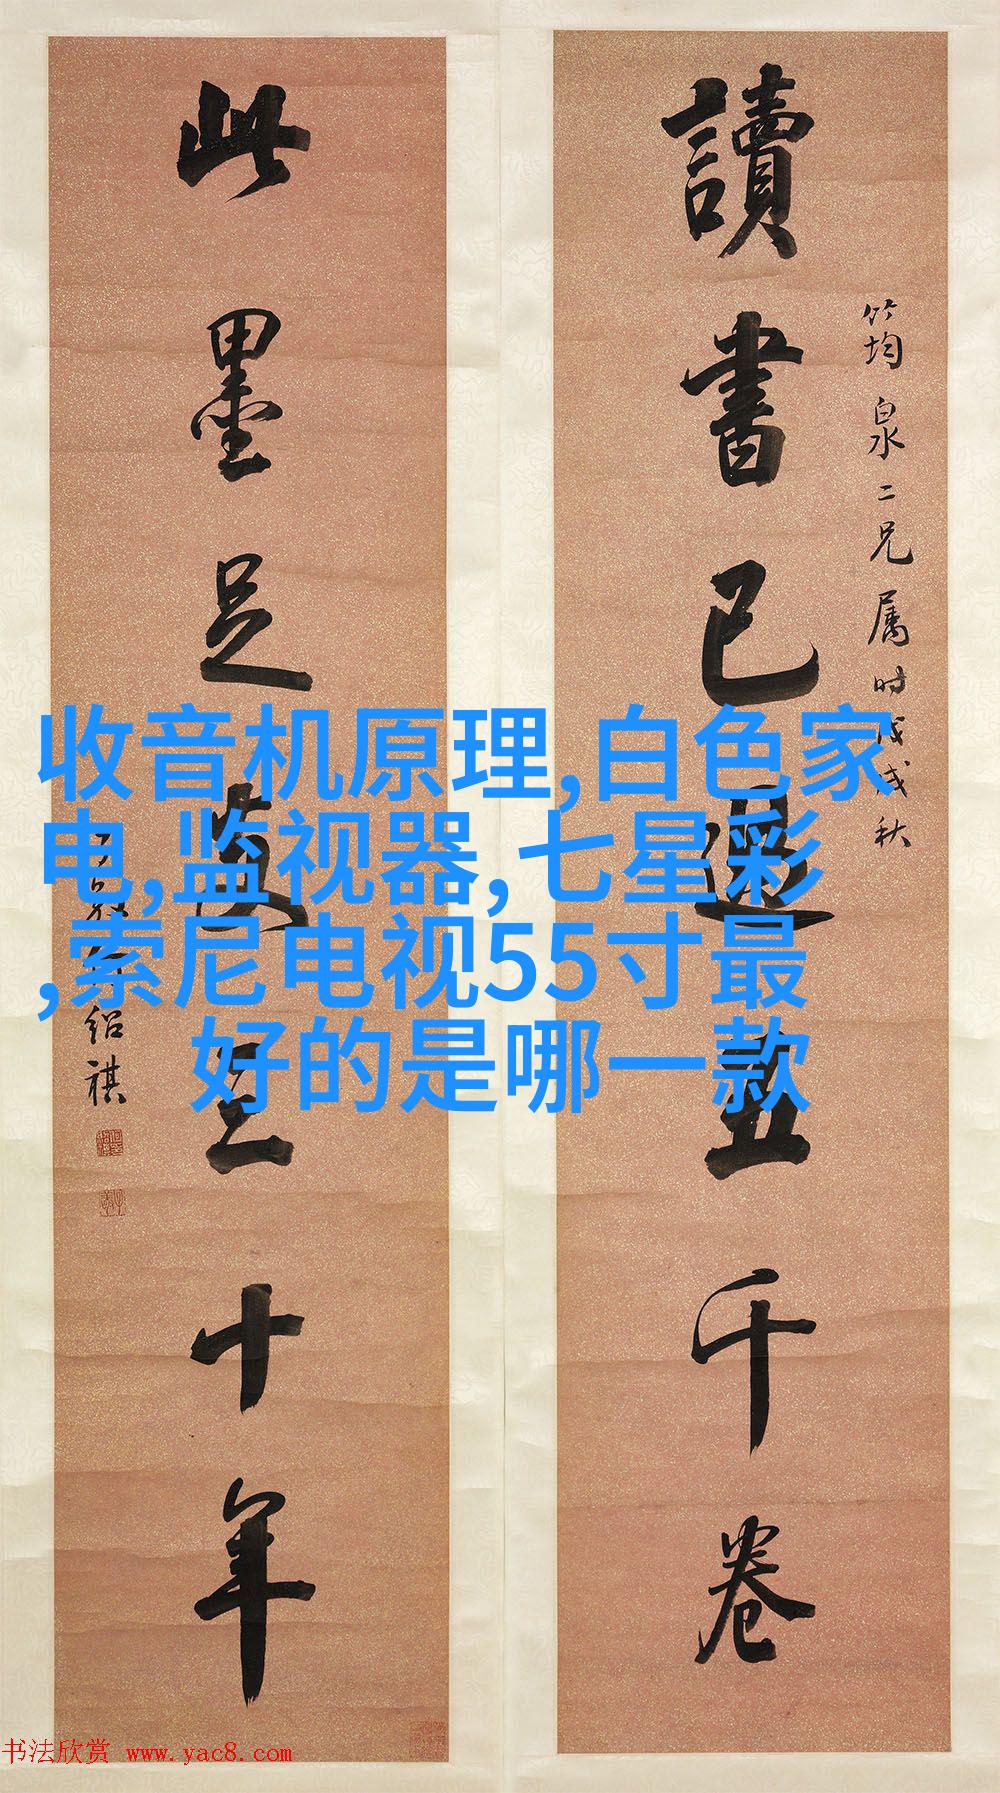 讀書已過五千卷
筠泉二兄属时戊戌秋
此墨足三十年
紹祺
收音机原理,白色家
电,监视器,七星彩
,索尼电视55寸最
好的是哪一款
书法欣赏 www.yac8.com